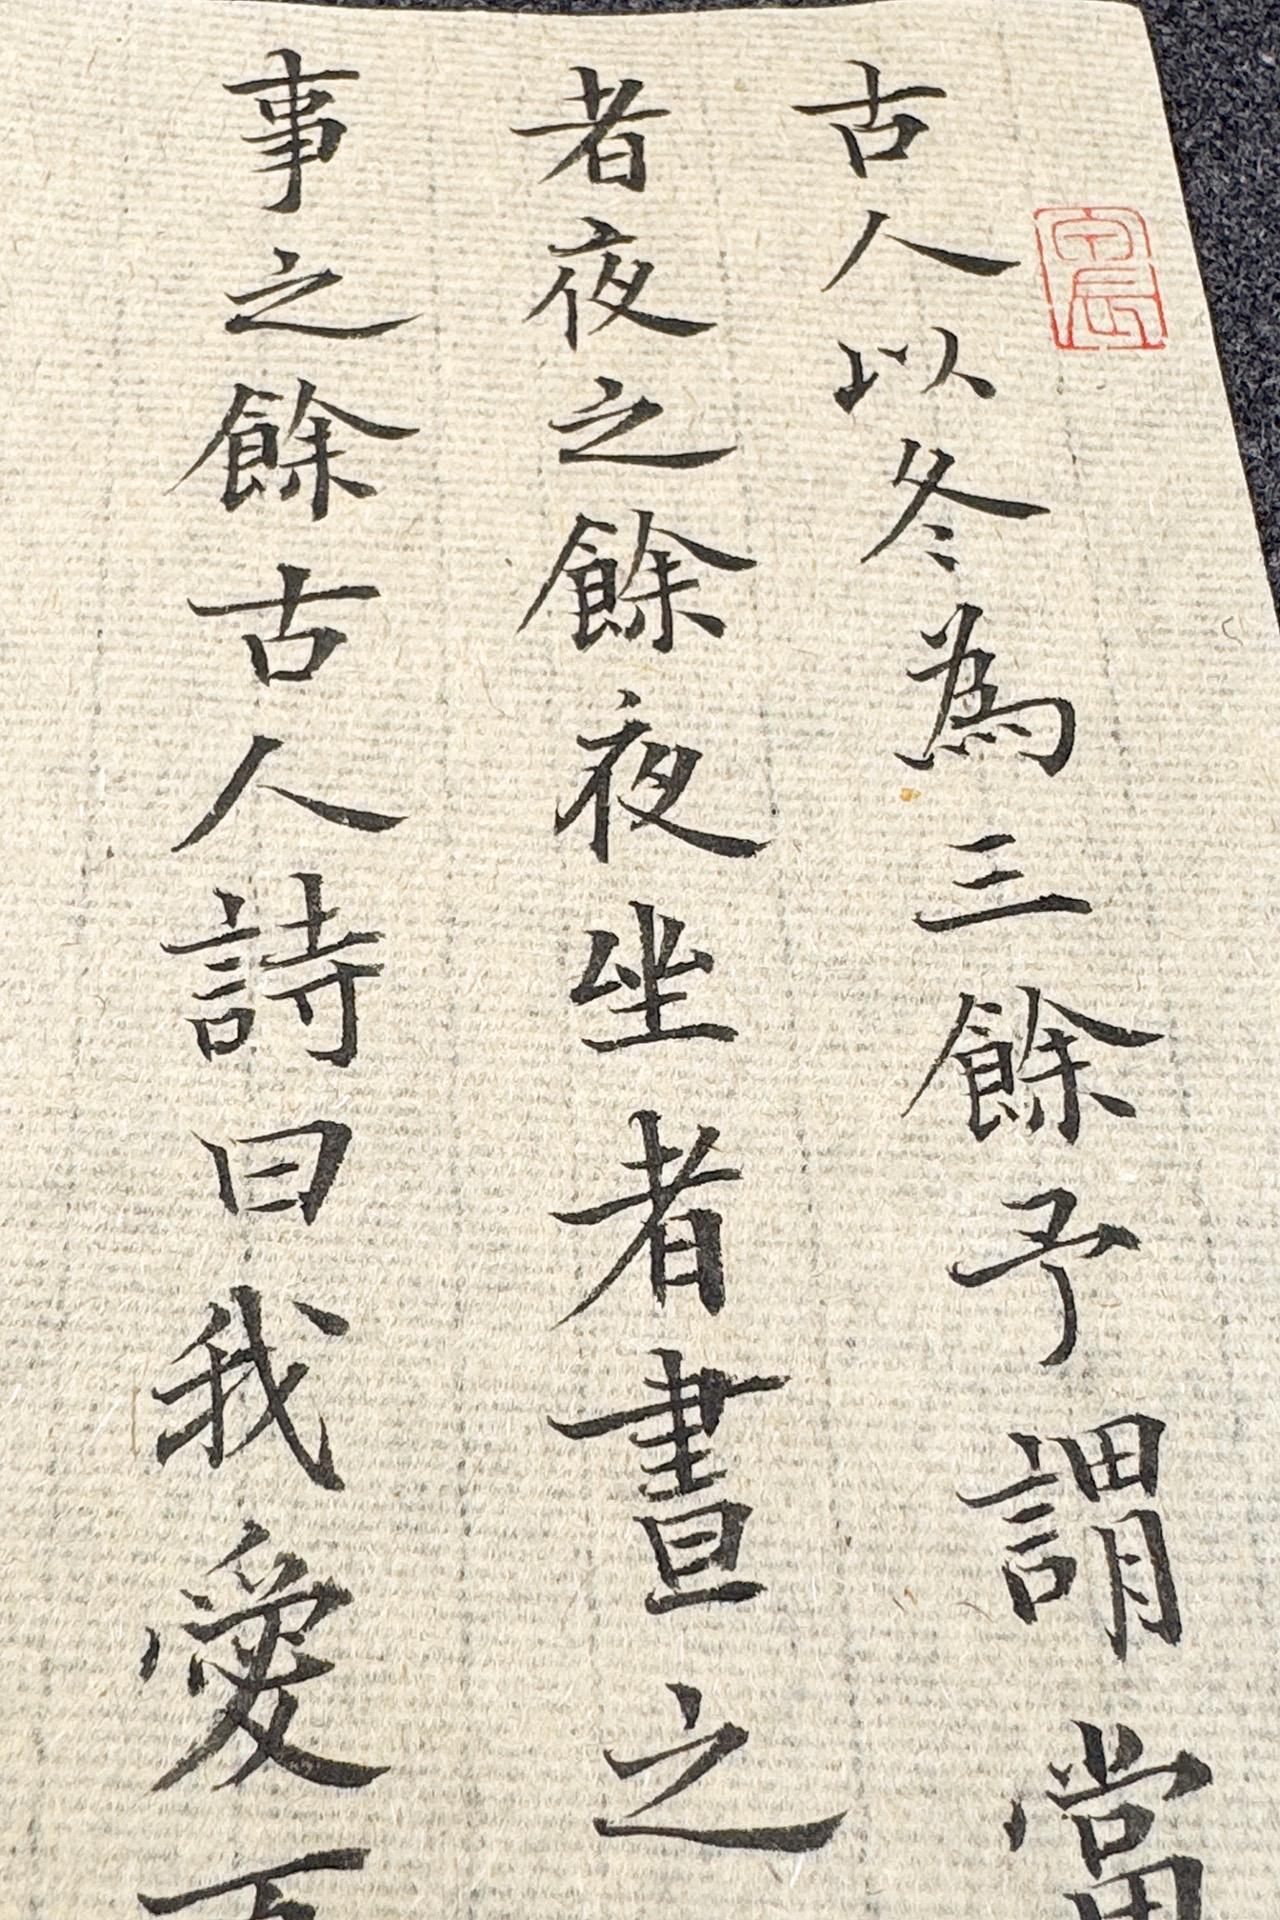 古人以冬為三餘予謂當
者夜之餘夜坐者晝之
事之餘古人詩曰我愛